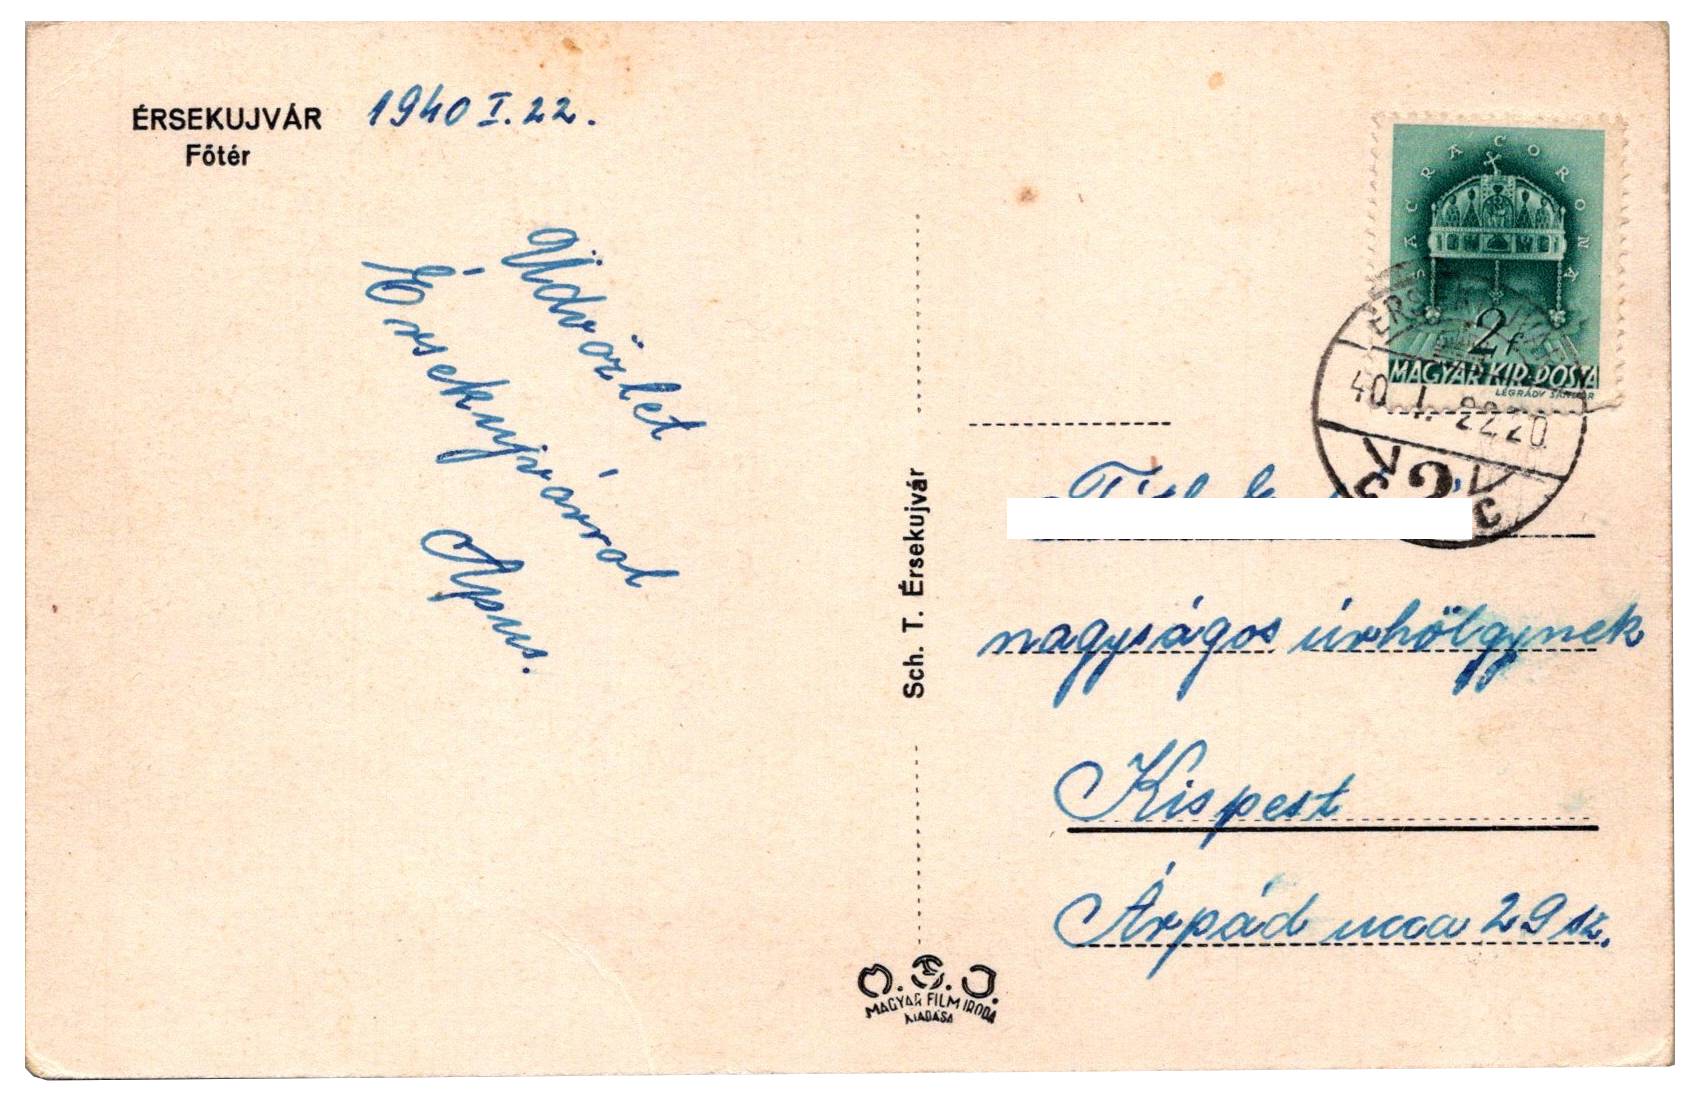 ÉRSEKUJVÁR
Főtér
1940 I. 22.
Üdvözlet
Érsekujvárról
Apus.
Sch. T. Érsekujvár
M.F.I.
MAGYAR FILM IRODA
KIADÁSA
SACRA CORONA
2 f
MAGYAR KIR. POSTA
LÉGRÁDY SÁNDOR
40 I. 22 20
nagyságos úrhölgynek
Kispest
Árpád ucca 29 sz.